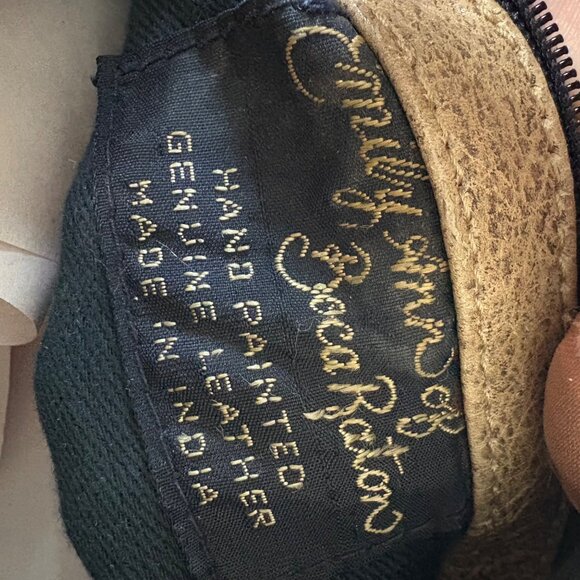 Emily Ann of
Boca Raton
HAND PAINTED
GENUINE LEATHER
MADE IN INDIA